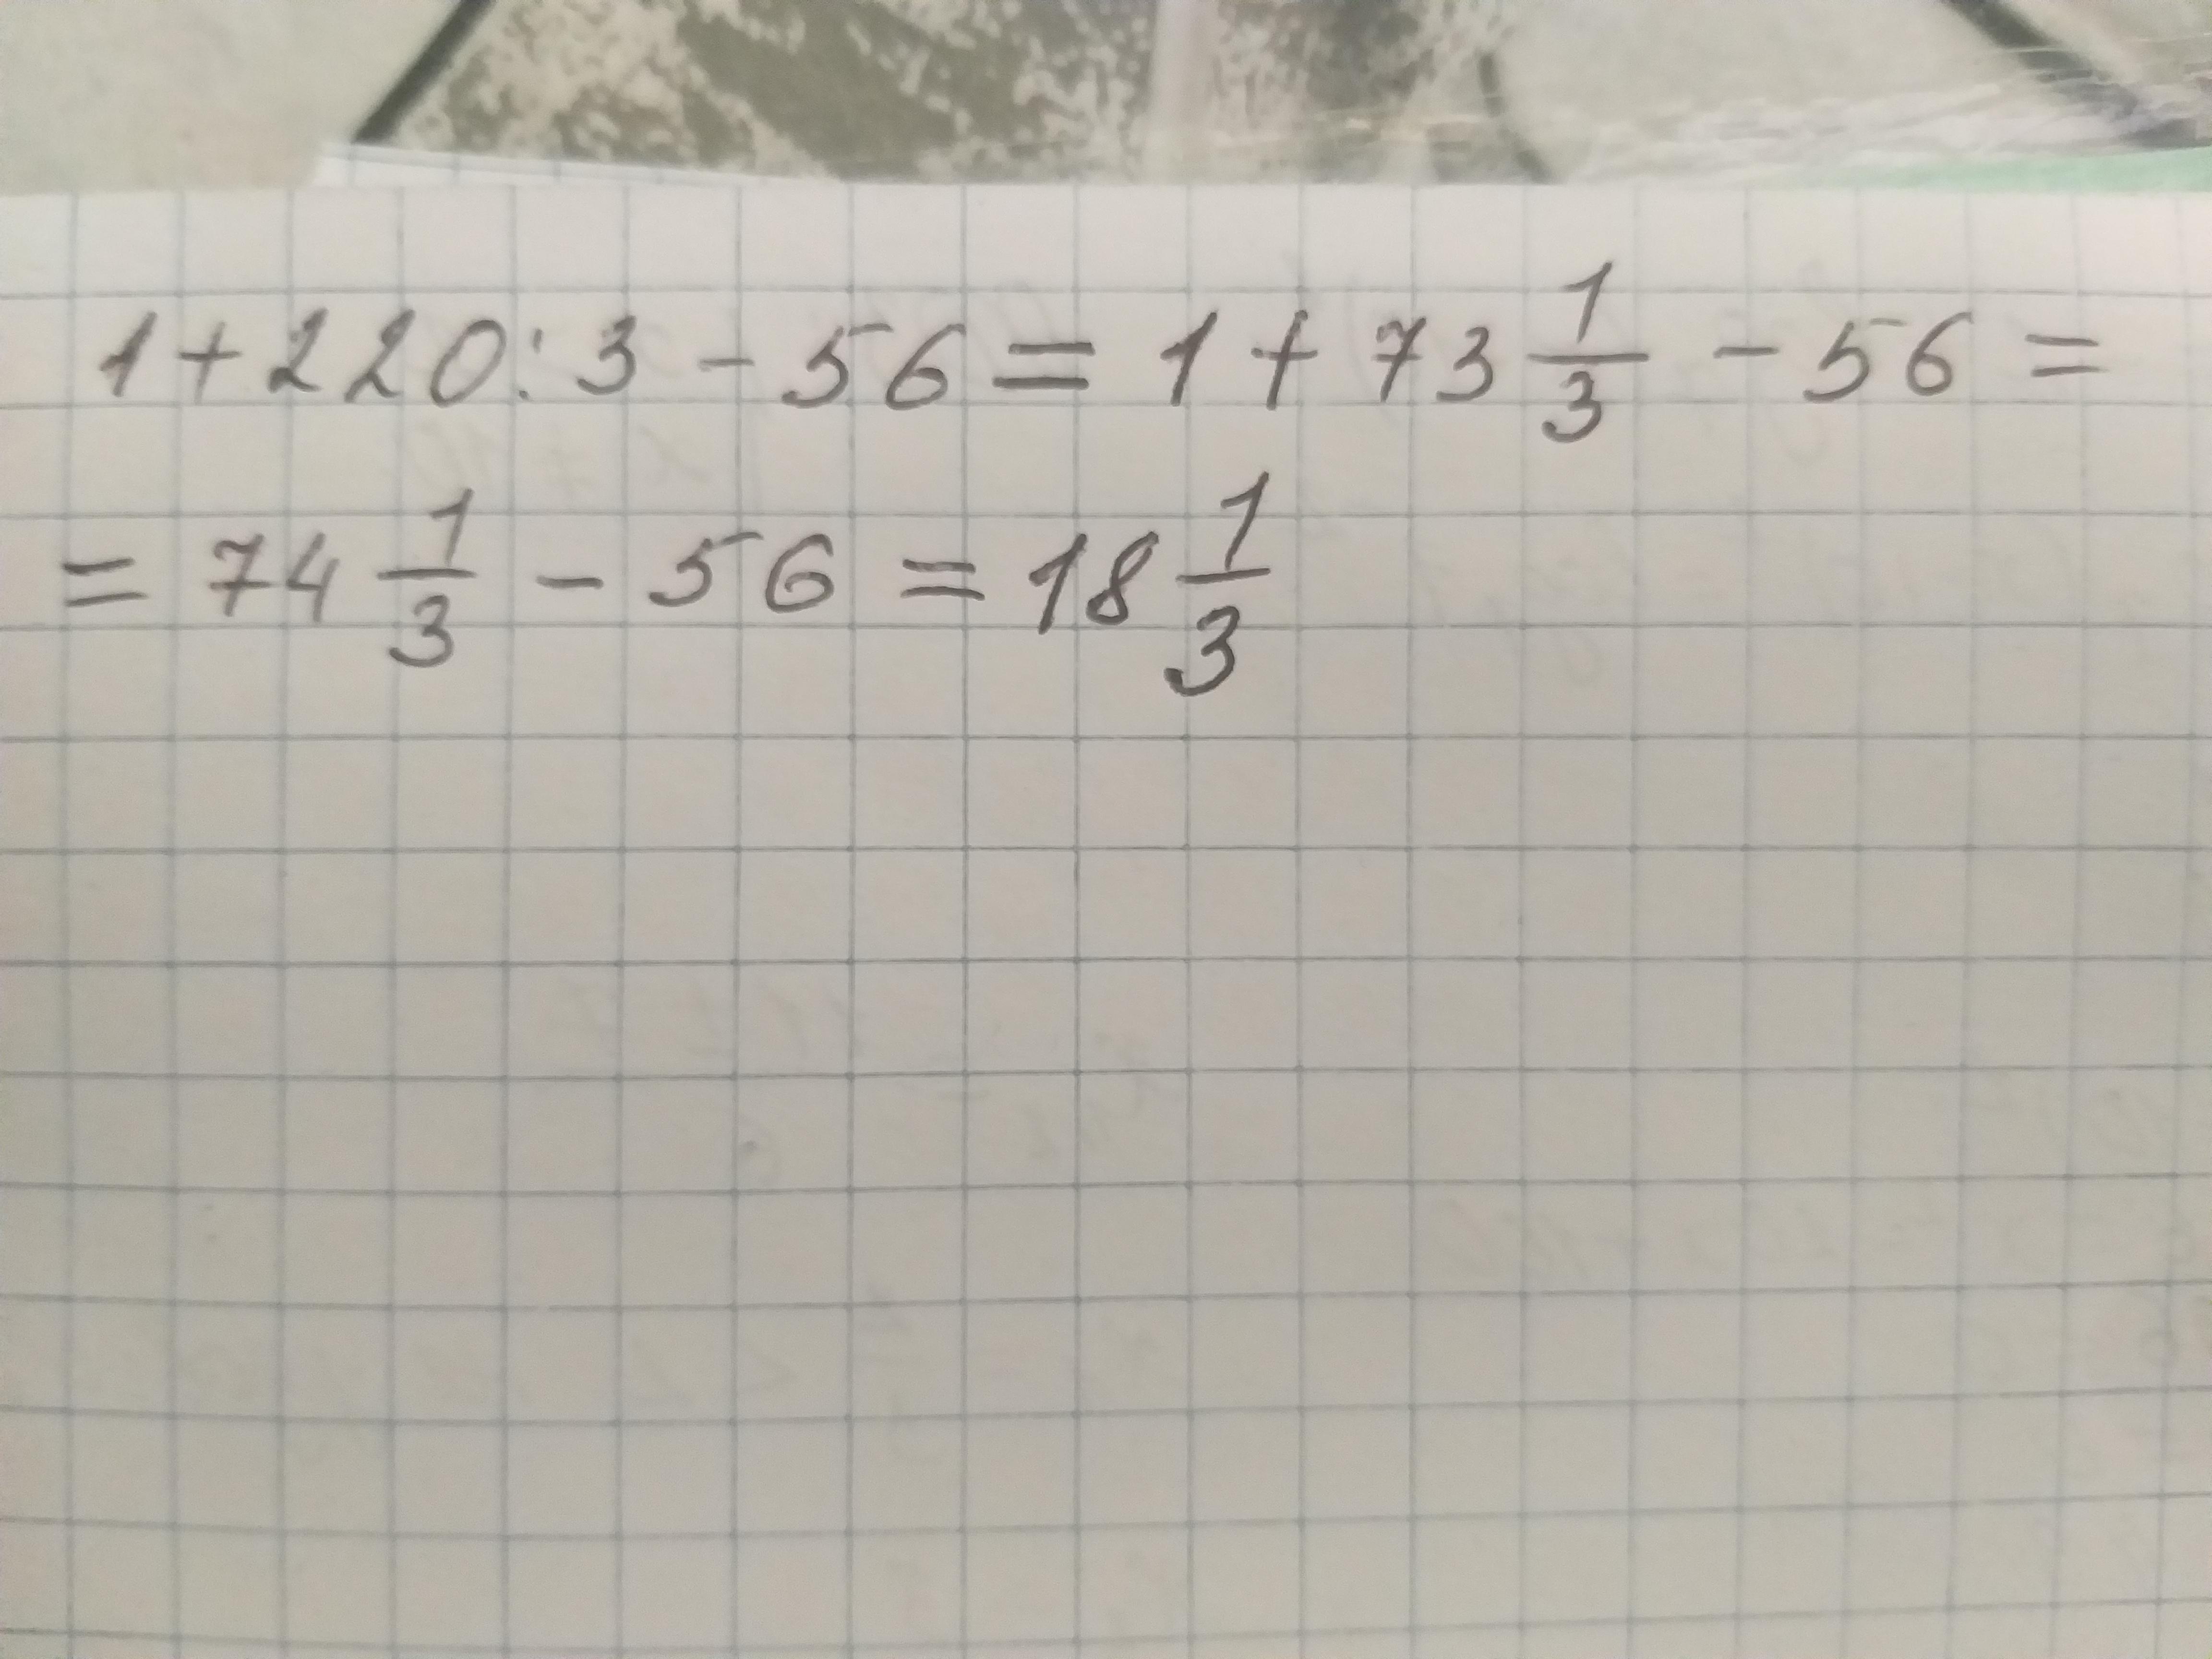 1+220:3-56=1+73 1/3-56=
=74 1/3-56=18 1/3